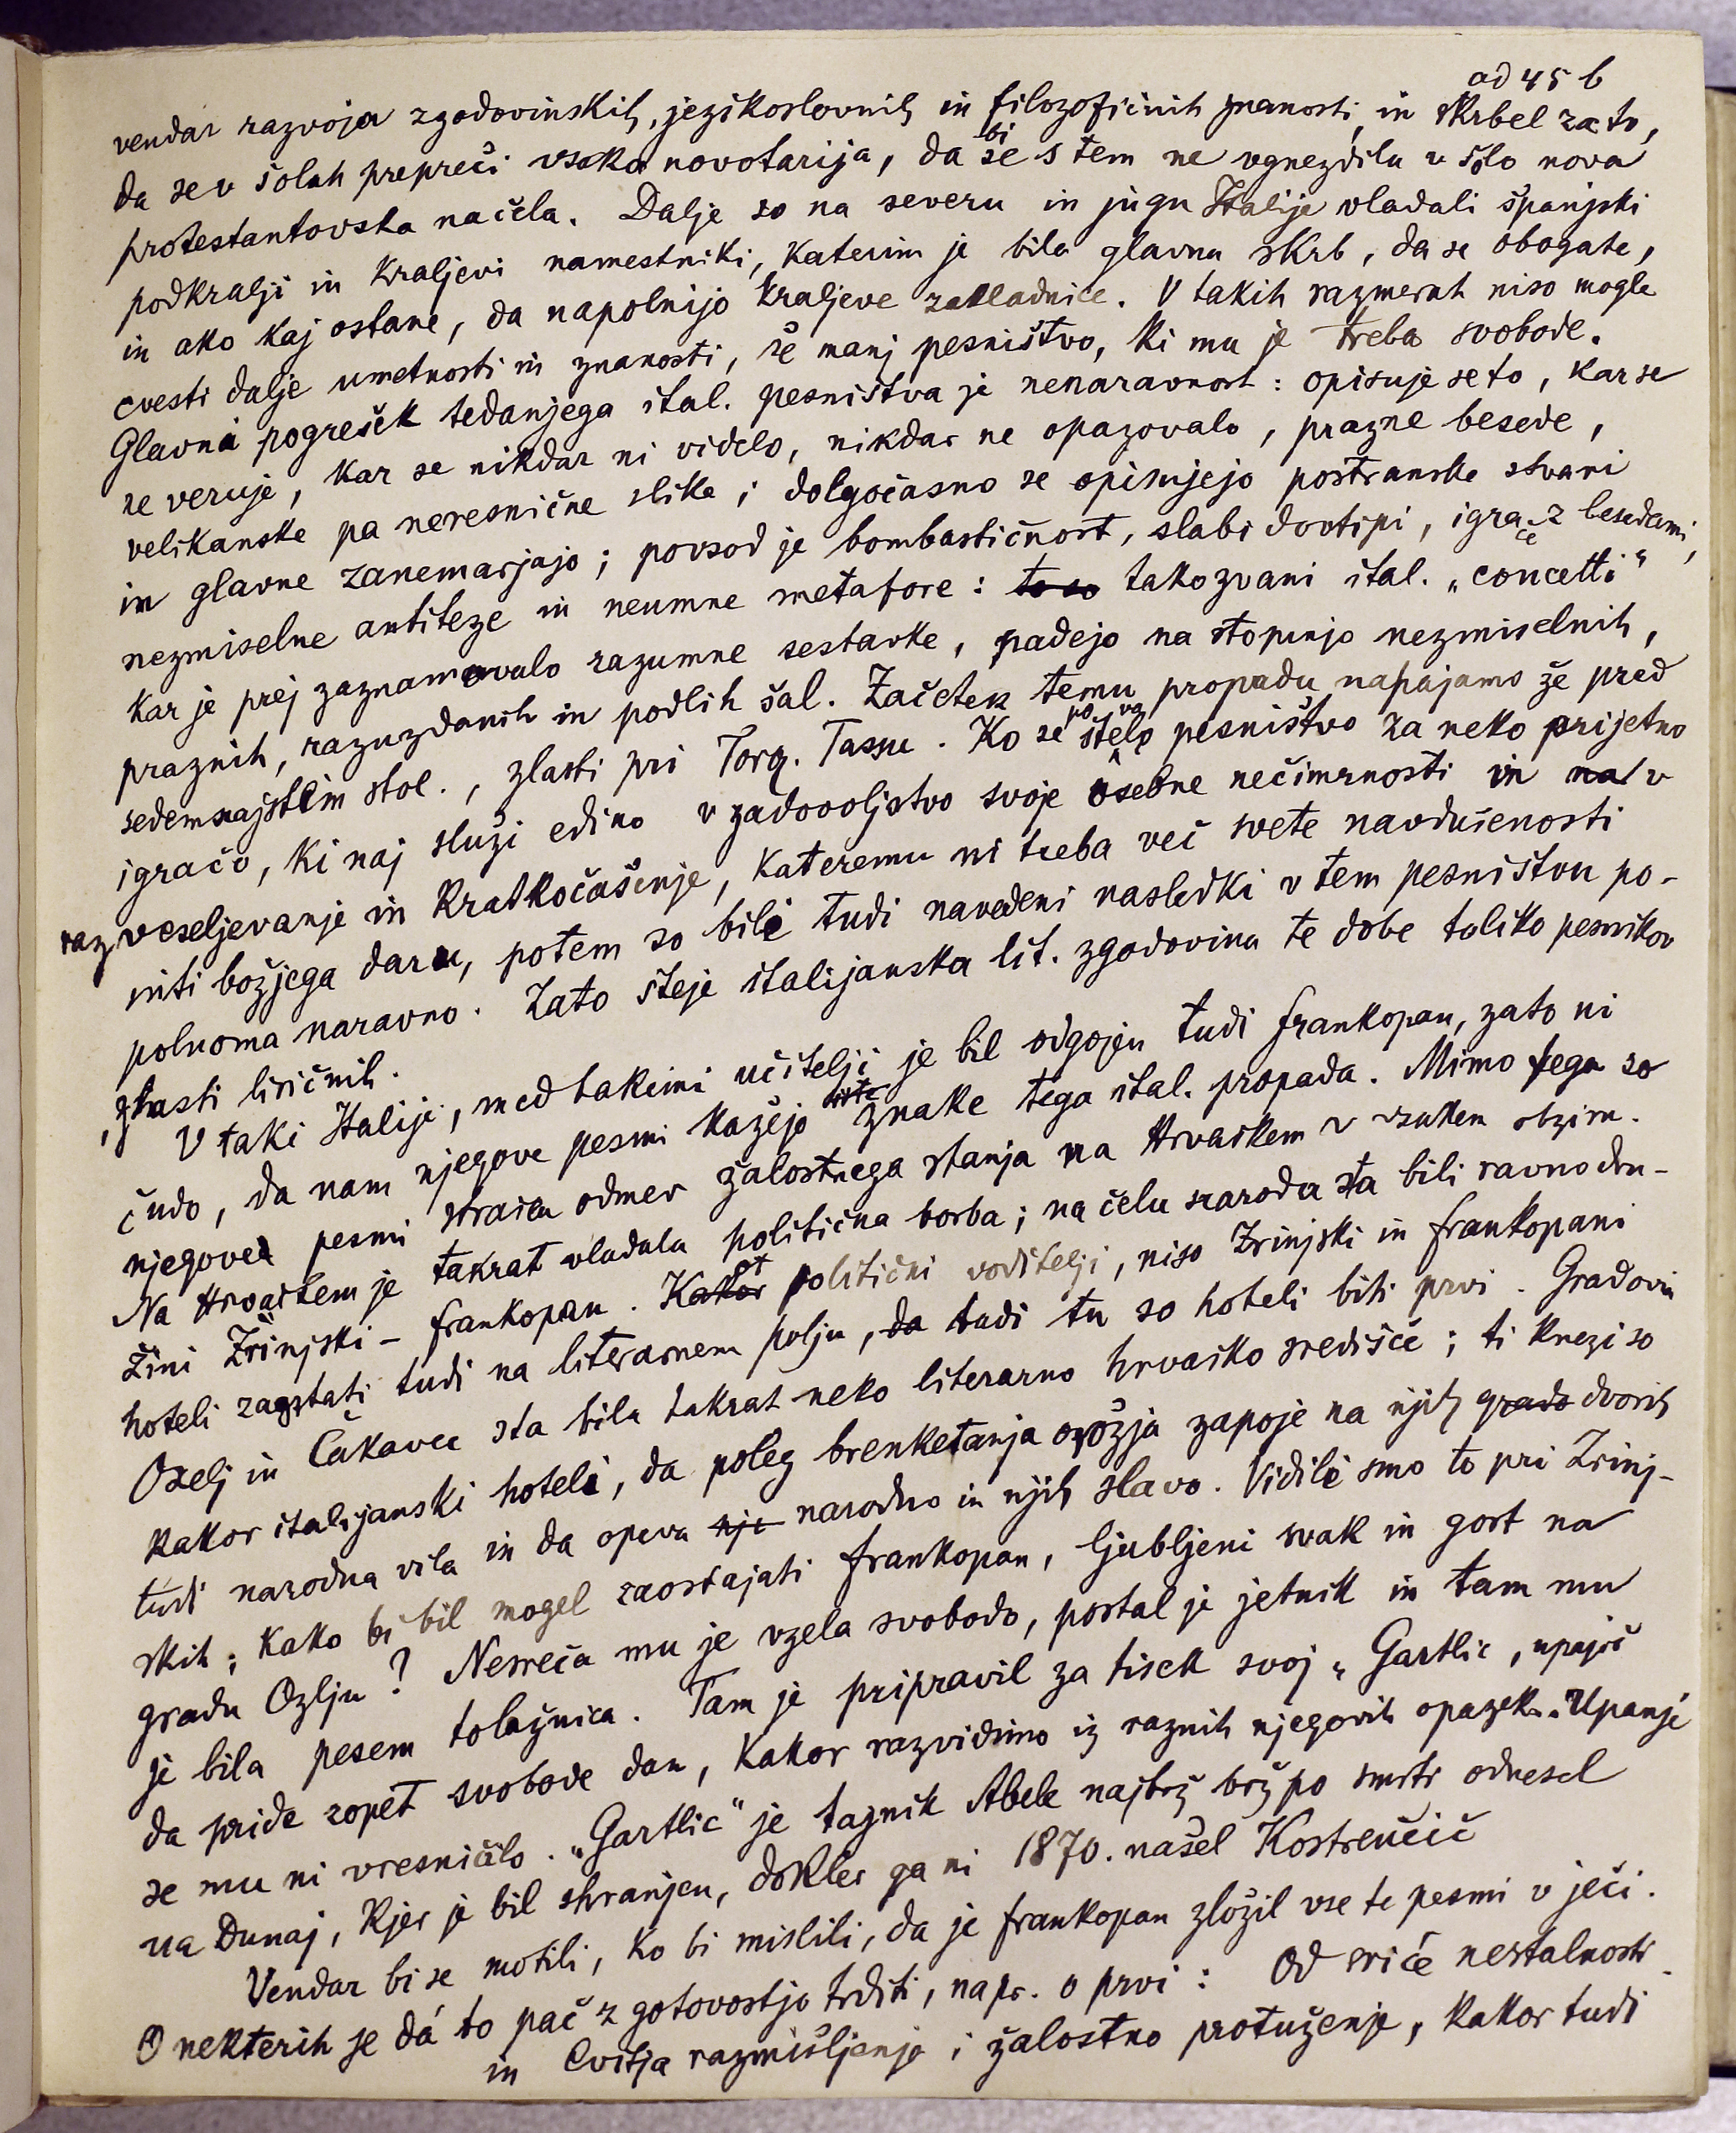 ad 45 b
vendar razvoja zgodovinskih, jezikoslovnih in filozofičnih znanosti, in skrbel za to,
da se v šolah prepreči vsaka novotarija, da bi se s tem ne vgnezdila v šolo nova
protestantovska načela. Dalje so na severu in jugu Italije vladali španjski
podkralji in kraljevi namestniki, katerim je bila glavna skrb, da se obogate,
in ako kaj ostane, da napolnijo kraljeve zakladnice. V takih razmerah niso mogle
cvesti dalje umetnosti in znanosti, še manj pesništvo, ki mu je treba svobode.
Glavni pogrešek tedanjega ital. pesništva je nenaravnost: opisuje se to, kar se
ne veruje, kar se nikdar ni videlo, nikdar ne opazovalo, prazne besede,
velikanske pa neresnične slike; dolgočasno se opisujejo postranske stvari
in glavne zanemarjajo; povsod je bombastičnost, slabi dovtipi, igrače z besedami,
nezmiselne antiteze in neumne metafore: to so takozvani ital. „concetti"
kar je prej zaznamovalo razumne sestavke, padejo na stopinjo nezmiselnih,
praznih, razuzdanih in podlih šal. Začetek temu propadu napajamo že pred
sedemnajstim stol., zlasti pri Torq. Tassu. Ko se je štelo pesništvo za neko prijetno
igračo, ki naj služi edino v zadovoljstvo svoje osebne nečimrnosti in na v
razveseljevanje in kratkočašenje, kateremu ni treba več svete navdušenosti
niti božjega daru, potem so bili tudi navedeni nasledki v tem pesništvu po-
polnoma naravno. Zato šteje italijanska lit. zgodovina te dobe toliko pesnikov
, zlasti liričnih.
V taki Italiji, med takimi učitelji je bil odgojen tudi Frankopan, zato ni
čudo, da nam njegove pesmi kažejo iste znake tega ital. propada. Mimo tega so
njegove pesmi odmev žalostnega stanja na Hrvaškem v vsakem obziru.
Na Hrvaškem je takrat vladala politična borba; na čelu naroda sta bili ravno dru-
žini Zrinjski – Frankopan. Kakor kot politični voditelji, niso Zrinjski in Frankopani
hoteli zaostati tudi na literarnem polju, da tudi tu so hoteli biti prvi. Gradovi
Ozelj in Čakavec sta bila takrat neko literarno hrvaško središče; ti knezi so
kakor italijanski hoteli, da poleg brenketanja orožja zapoje na njih grado dvorih
tudi narodna vila in da opeva nje narodno in njih slavo. Vidili smo to pri Zrinj-
skih; kako bi bil mogel zaostajati Frankopan, ljubljeni svak in gost na
gradu Ozlju? Nesreča mu je vzela svobodo, postal je jetnik in tam mu
je bila pesem tolažnica. Tam je pripravil za tisek svoj „Gartlic, upajoč
da pride zopet svobode dan, kakor razvidimo iz raznih njegovih opazek. Upanje
se mu ni vresničilo. „Gartlic" je tajnik Abele najbrž brž po smrti odnesel
na Dunaj, kjer je bil shranjen, dokler ga ni 1870. našel Kostrenčič
Vendar bi se motili, ko bi mislili, da je Frankopan zložil vse te pesmi v ječi.
O nekterih se dá to pač z gotovostjo trditi, napr. o prvi: Od sriće nestalnosti
in Cvitja razmišljenje i žalostno protuženje, kakor tudi